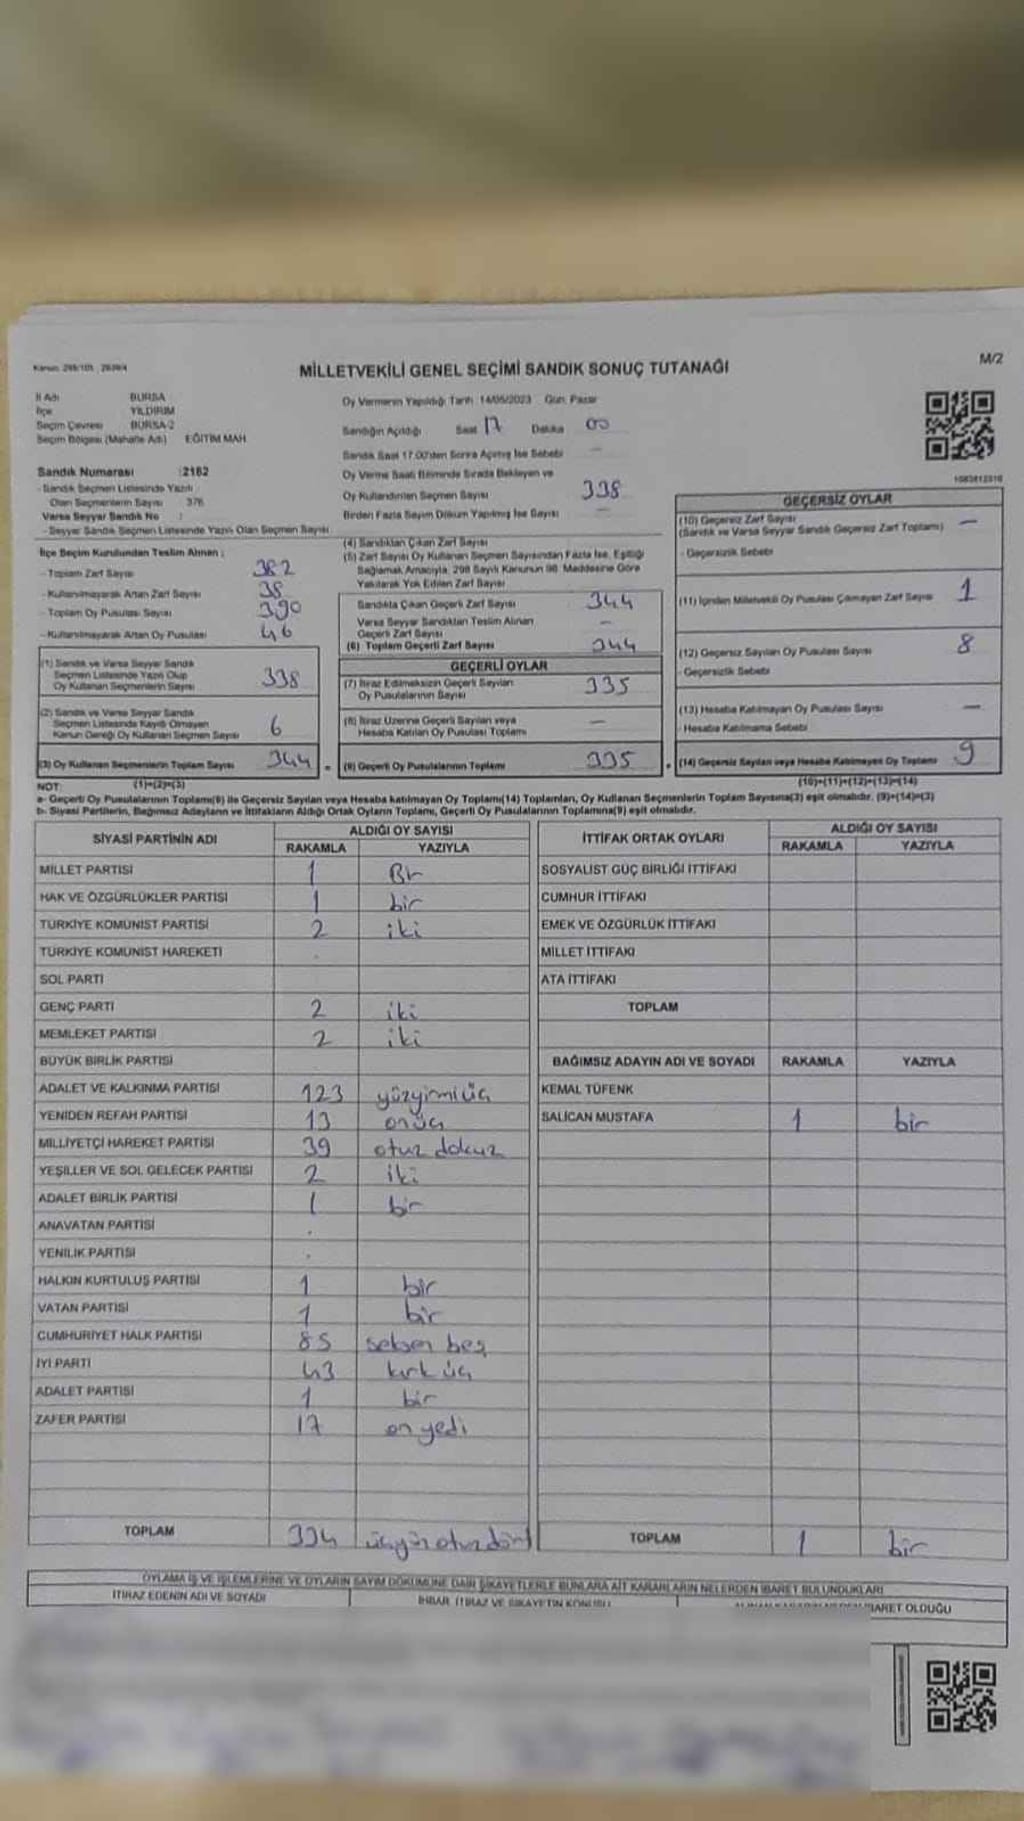 MİLLETVEKİLİ GENEL SEÇİMİ SANDIK SONUÇ TUTANAĞI
M/2
İl Adı BURSA
İlçe YILDIRIM
Seçim Çevresi BURSA-2
Seçim Bölgesi (Mahalle Adı) EĞİTİM MAH.
Sandık Numarası :2182
- Sandık Seçmen Listesinde Yazılı
Olan Seçmenlerin Sayısı 376
Varsa Seyyar Sandık No :
- Seyyar Sandık Seçmen Listesinde Yazılı Olan Seçmen Sayısı
Oy Vermenin Yapıldığı Tarih: 14/05/2023 Gün: Pazar
Sandığın Açıldığı Saat 17 Dakika 00
Sandık Saat 17.00'den Sonra Açılmış İse Sebebi —
Oy Verme Saati Bitiminde Sırada Bekleyen ve
Oy Kullandırılan Seçmen Sayısı 338
Birden Fazla Sayım Döküm Yapılmış İse Sayısı —
İlçe Seçim Kurulundan Teslim Alınan :
- Toplam Zarf Sayısı 382
- Kullanılmayarak Artan Zarf Sayısı 38
- Toplam Oy Pusulası Sayısı 390
- Kullanılmayarak Artan Oy Pusulası 46
(1) Sandık ve Varsa Seyyar Sandık
Seçmen Listesinde Yazılı Olup
Oy Kullanan Seçmenlerin Sayısı 338
(2) Sandık ve Varsa Seyyar Sandık
Seçmen Listesinde Kaydı Olmayan
Kanun Gereği Oy Kullanan Seçmen Sayısı 6
(3) Oy Kullanan Seçmenlerin Toplam Sayısı 344
(4) Sandıktan Çıkan Zarf Sayısı
(5) Zarf Sayısı Oy Kullanan Seçmen Sayısından Fazla İse, Eşitliği
Sağlamak Amacıyla, 298 Sayılı Kanunun 98. Maddesine Göre
Yakılarak Yok Edilen Zarf Sayısı
Sandıkta Çıkan Geçerli Zarf Sayısı 344
Varsa Seyyar Sandıktan Teslim Alınan
Geçerli Zarf Sayısı —
(6) Toplam Geçerli Zarf Sayısı 344
GEÇERLİ OYLAR
(7) İtiraz Edilmeksizin Geçerli Sayılan
Oy Pusulalarının Sayısı 335
(8) İtiraz Üzerine Geçerli Sayılan veya
Hesaba Katılan Oy Pusulası Toplamı —
(9) Geçerli Oy Pusulalarının Toplamı 335
GEÇERSİZ OYLAR
(10) Geçersiz Zarf Sayısı
(Sandık ve Varsa Seyyar Sandık Geçersiz Zarf Toplamı) —
- Geçersizlik Sebebi
(11) İçinden Milletvekili Oy Pusulası Çıkmayan Zarf Sayısı 1
(12) Geçersiz Sayılan Oy Pusulası Sayısı 8
- Geçersizlik Sebebi
(13) Hesaba Katılmayan Oy Pusulası Sayısı —
- Hesaba Katılmama Sebebi
(14) Geçersiz Sayılan veya Hesaba Katılmayan Oy Toplamı 9
NOT: (1)+(2)=(3) (10)+(11)+(12)+(13)=(14)
a- Geçerli Oy Pusulalarının Toplamı(9) ile Geçersiz Sayılan veya Hesaba katılmayan Oy Toplamı(14) Toplamları, Oy Kullanan Seçmenlerin Toplam Sayısına(3) eşit olmalıdır. (9)+(14)=(3)
b- Siyasi Partilerin, Bağımsız Adayların ve İttifakların Aldığı Ortak Oyların Toplamı, Geçerli Oy Pusulalarının Toplamına(9) eşit olmalıdır.
SİYASİ PARTİNİN ADI ALDIĞI OY SAYISI
RAKAMLA YAZIYLA
MİLLET PARTİSİ 1 Bir
HAK VE ÖZGÜRLÜKLER PARTİSİ 1 bir
TÜRKİYE KOMÜNİST PARTİSİ 2 iki
TÜRKİYE KOMÜNİST HAREKETİ
SOL PARTİ
GENÇ PARTİ 2 iki
MEMLEKET PARTİSİ 2 iki
BÜYÜK BİRLİK PARTİSİ
ADALET VE KALKINMA PARTİSİ 123 yüzyirmiüç
YENİDEN REFAH PARTİSİ 13 onüç
MİLLİYETÇİ HAREKET PARTİSİ 39 otuz dokuz
YEŞİLLER VE SOL GELECEK PARTİSİ 2 iki
ADALET BİRLİK PARTİSİ 1 bir
ANAVATAN PARTİSİ
YENİLİK PARTİSİ
HALKIN KURTULUŞ PARTİSİ 1 bir
VATAN PARTİSİ 1 bir
CUMHURİYET HALK PARTİSİ 85 seksen beş
İYİ PARTİ 43 kırk üç
ADALET PARTİSİ 1 bir
ZAFER PARTİSİ 17 on yedi
TOPLAM 334 üçyüz otuz dört
İTTİFAK ORTAK OYLARI ALDIĞI OY SAYISI
RAKAMLA YAZIYLA
SOSYALİST GÜÇ BİRLİĞİ İTTİFAKI
CUMHUR İTTİFAKI
EMEK VE ÖZGÜRLÜK İTTİFAKI
MİLLET İTTİFAKI
ATA İTTİFAKI
TOPLAM
BAĞIMSIZ ADAYIN ADI VE SOYADI RAKAMLA YAZIYLA
KEMAL TÜFENK
SALİCAN MUSTAFA 1 bir
TOPLAM 1 bir
OYLAMA İŞ VE İŞLEMLERİNE VE OYLARIN SAYIM DÖKÜMÜNE DAİR ŞİKAYETLERLE BUNLARA AİT KARARLARIN NELERDEN İBARET BULUNDUKLARI
İTİRAZ EDENİN ADI VE SOYADI
İHBAR, İTİRAZ VE ŞİKAYETİN KONUSU
İBARET OLDUĞU